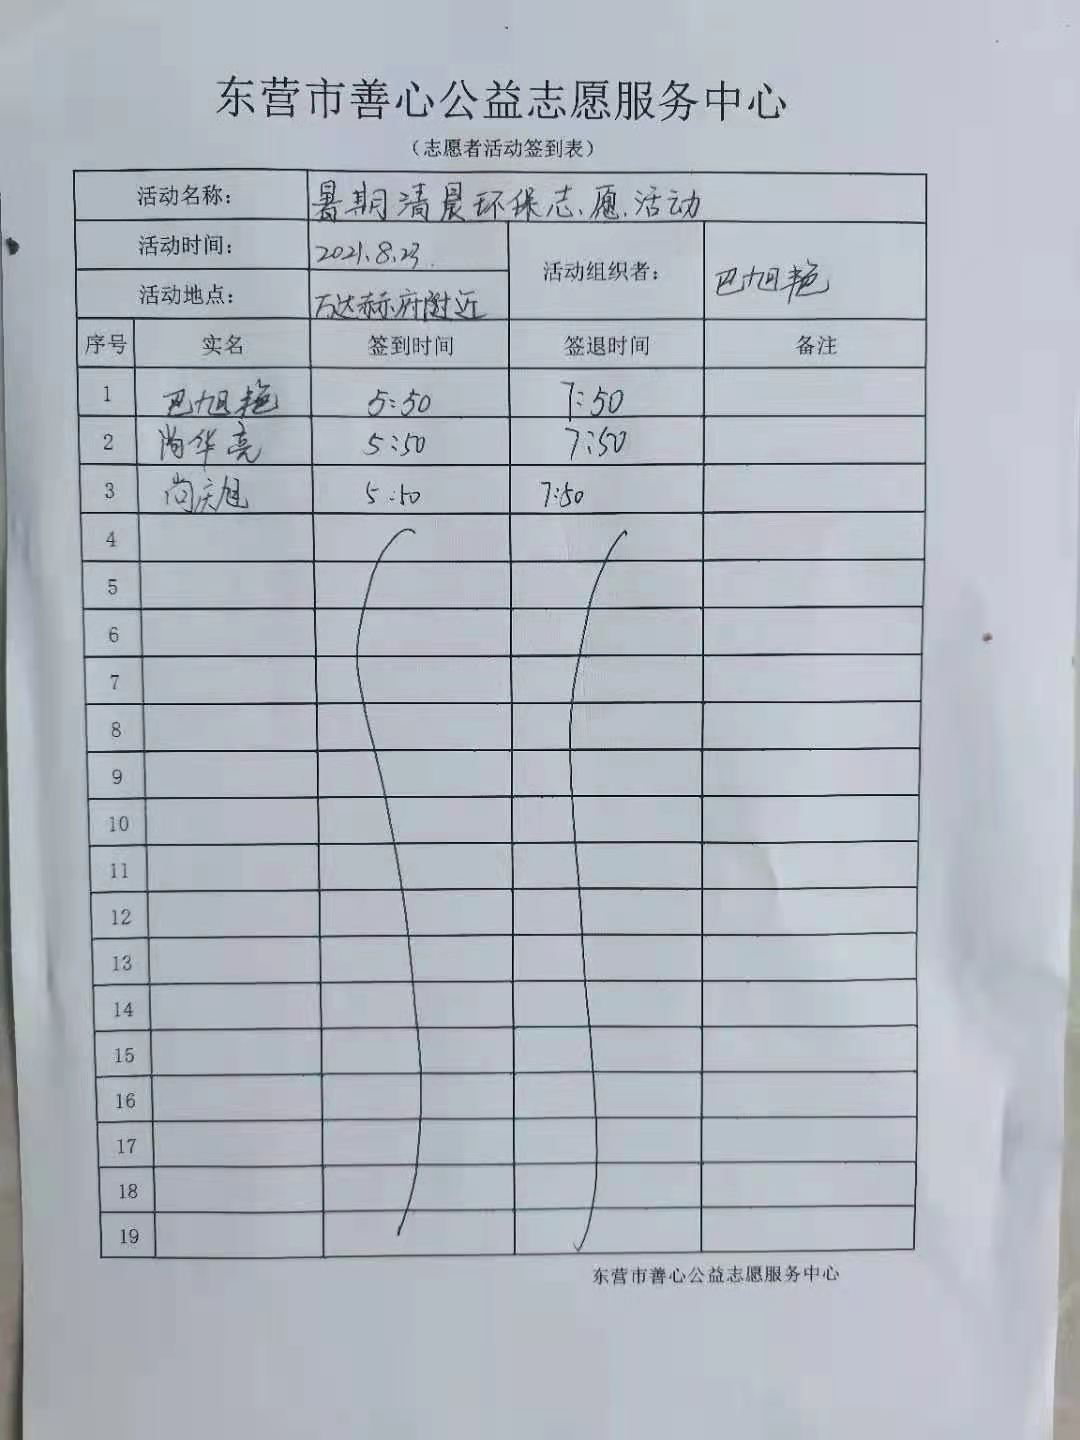 东营市善心公益志愿服务中心
（志愿者活动签到表）
活动名称： 暑期清晨环保志愿活动
活动时间： 2021.8.23.
活动组织者： 巴旭艳
活动地点： 万达赫府附近
序号 实名 签到时间 签退时间 备注
1 巴旭艳 5:50 7:50
2 尚华亮 5:50 7:50
3 尚庆旭 5:50 7:50
4
5
6
7
8
9
10
11
12
13
14
15
16
17
18
19
东营市善心公益志愿服务中心